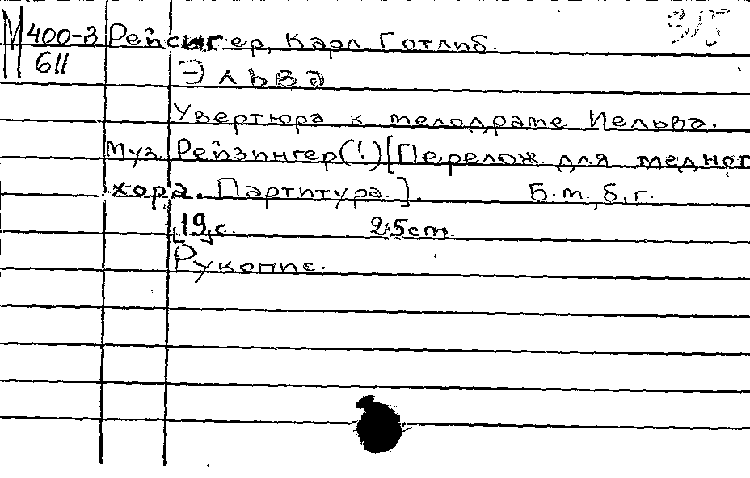 М 400-3 Рейсингер, Карл Готлиб.
611 Эльва
Увертюра к мелодраме Иельва.
Муз. Рейзингер(!) [Перелож для медног
хора. Партитура]. Б.м., б.г.
[19] с. 25см.
Рукопис.